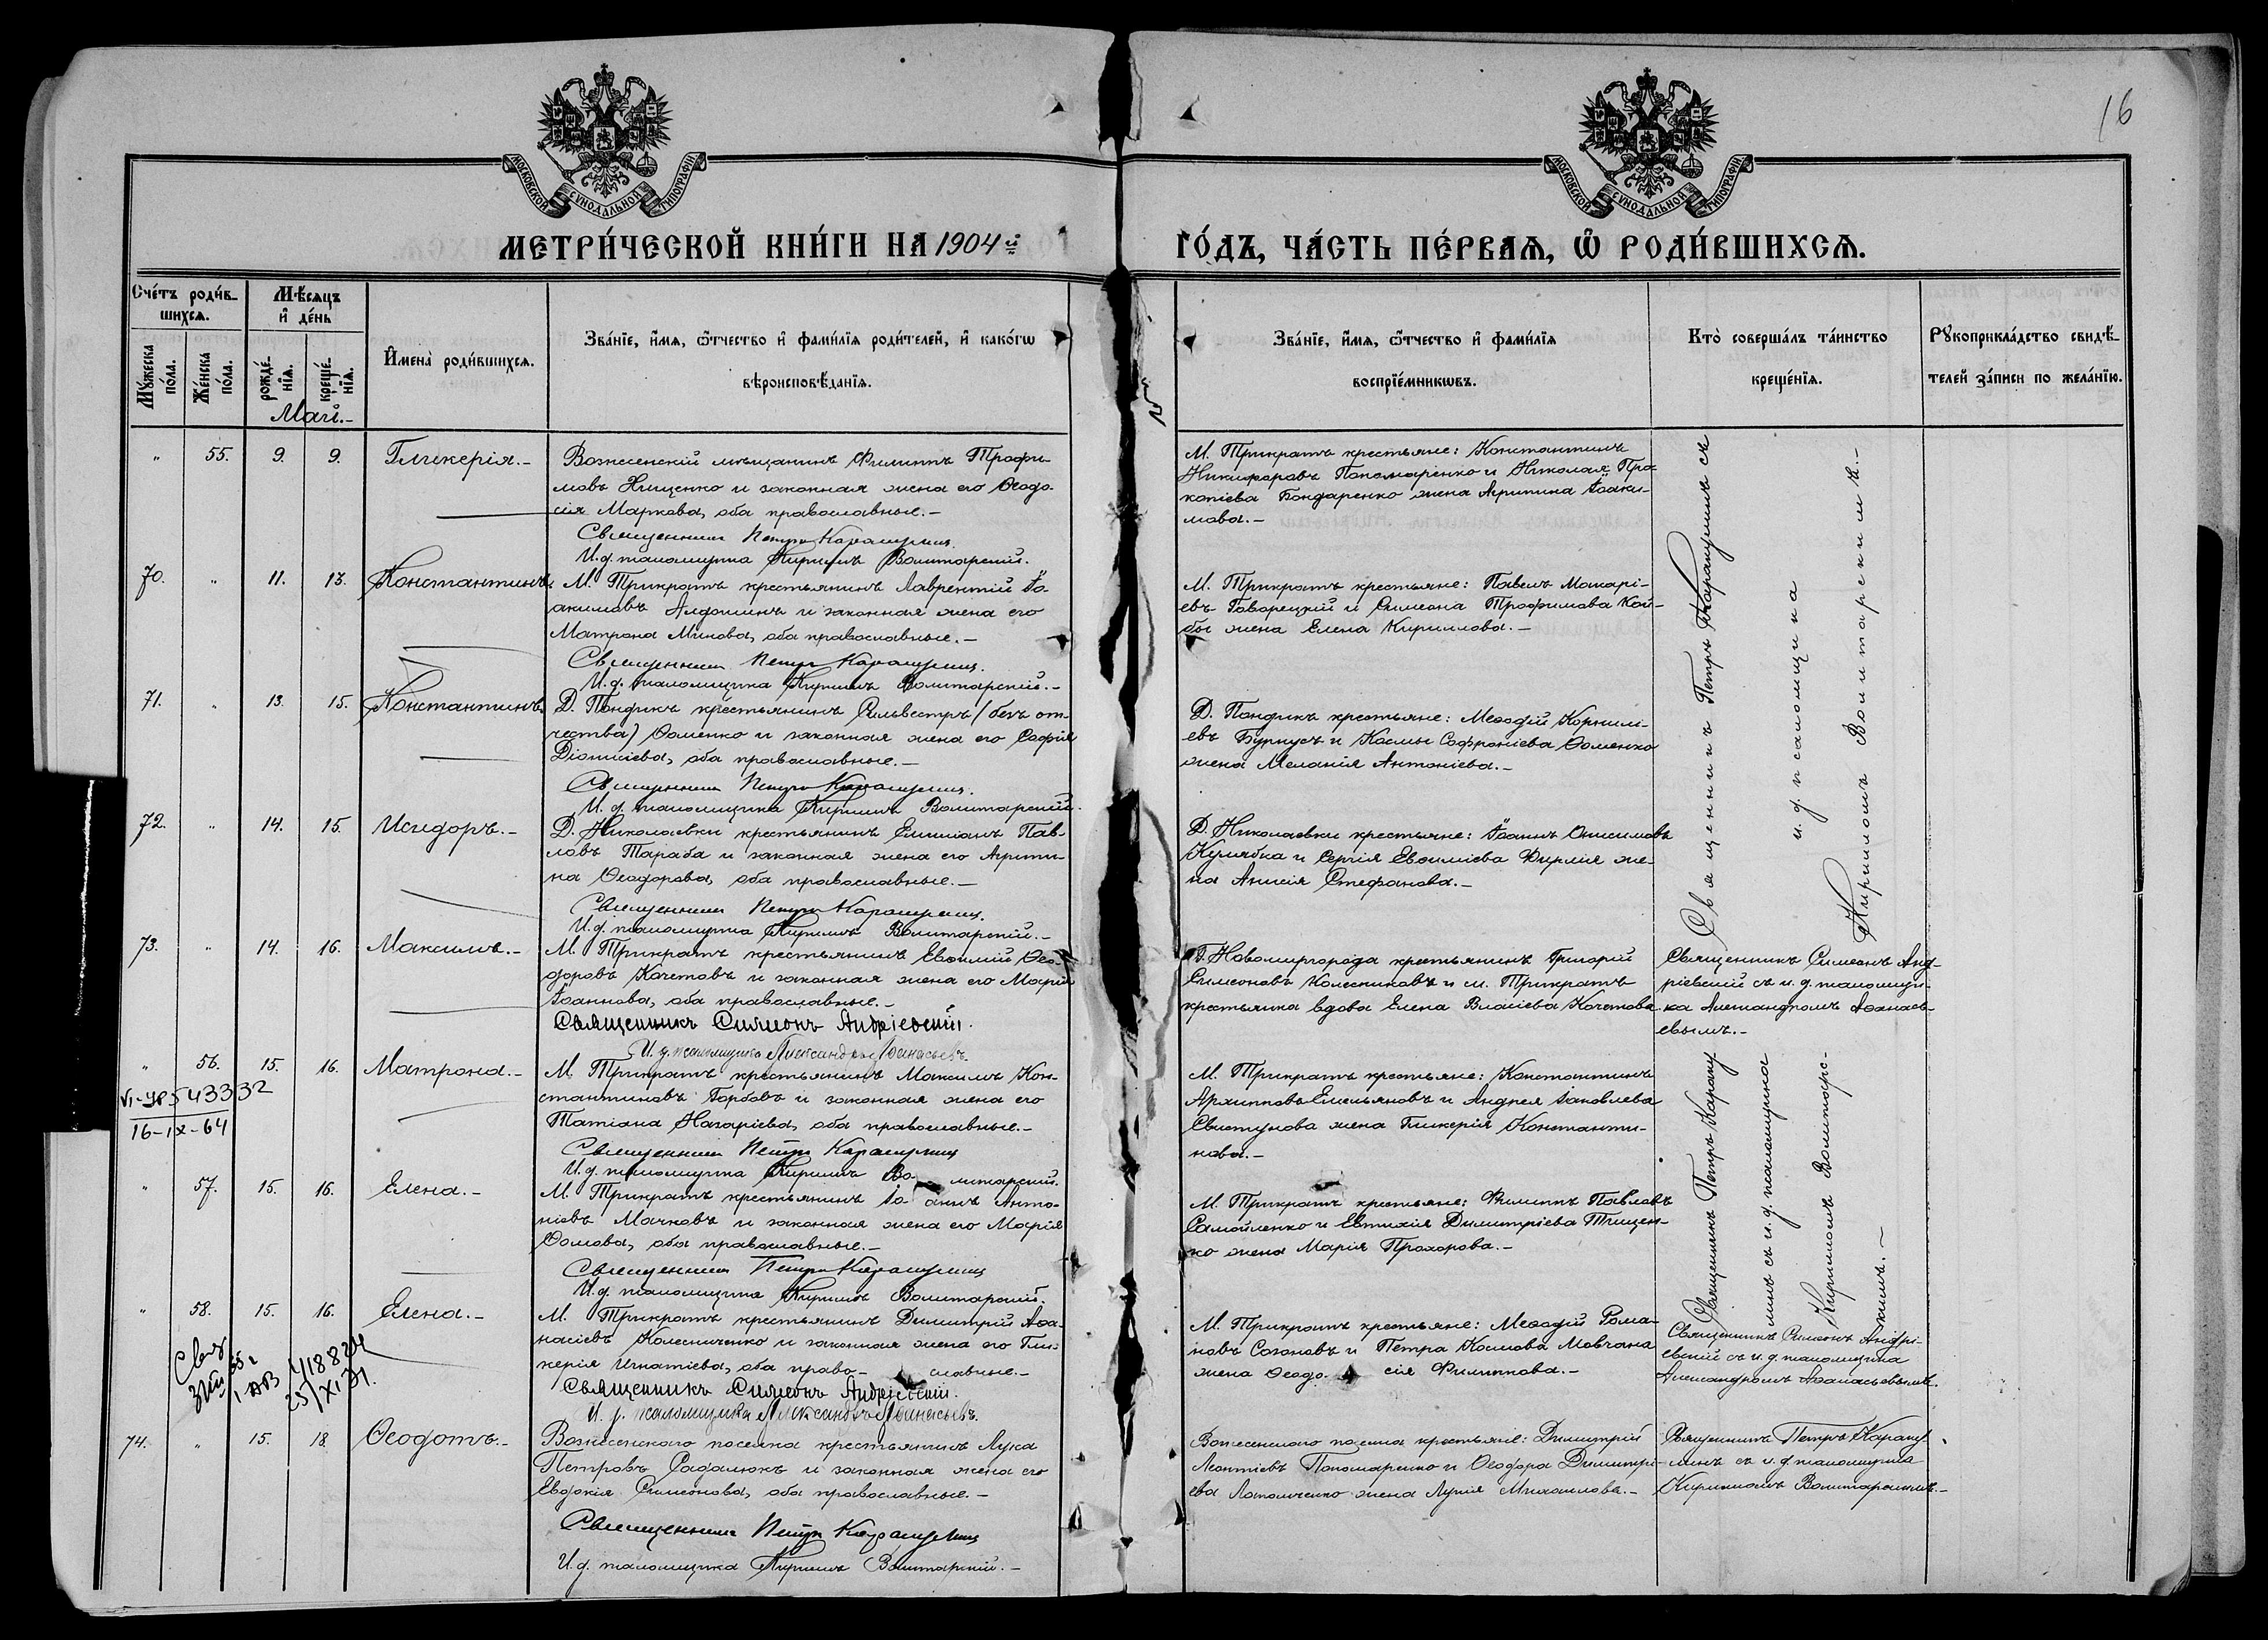 16
МОСКОВСКОЙ СѴНОДАЛЬНОЙ ТИПОГРАФІИ
МОСКОВСКОЙ СѴНОДАЛЬНОЙ ТИПОГРАФІИ
МЕТРИ́ЧЕСКОЙ КНИ́ГИ НА 1904й ГО́ДЪ, ЧА́СТЬ ПЕ́РВАѦ, Ѡ҆ РОДИ́ВШИХСѦ.
Сче́тъ роди́в-
шихсѧ.
Мѣ́сѧцъ
и҆ де́нь
Мꙋ́жеска
по́ла.
Же́нска
по́ла.
рожде́-
нїѧ.
креще́-
нїѧ.
И҆мена̀ роди́вшихсѧ.
Зва́нїе, и҆́мѧ, ѻ҆́тчество и҆ фами́лїѧ роди́телей, и҆ како́гѡ
вѣроисповѣ́данїѧ.
Зва́нїе, и҆́мѧ, ѻ҆́тчество и҆ фами́лїѧ
воспрїе́мникѡвъ.
Кто̀ соверша́лъ та́инство
креще́нїѧ.
Рꙋкоприкла́дство свидѣ́-
телей за́писи по жела́нїю.
Май.-
" 55. 9. 9. Гликерія.-
Вознесенскій мѣщанинъ Филиппъ Трофи-
мовъ Нищенко и законная жена его Ѳеодо-
сія Маркова, оба православные.-
Священникъ Петръ Карамулинъ
И.д. псаломщика Кириллъ Волитарскій.
М. Трикратъ крестьяне: Константинъ
Никифоровъ Пономаренко и Николая Про-
копіева Бондаренко жена Агрипина Іоаки-
мова.-
Священникъ Петръ Карамулинъ съ
и. д. псаломщика
Кирилломъ Волитарскимъ.-
70. " 11. 13. Константинъ.
М. Трикратъ крестьянинъ Лаврентій Іо-
акимовъ Алдошинъ и законная жена его
Матрона Минова, оба православные.-
Священникъ Петръ Карамулинъ.
И.д. псаломщика Кириллъ Волитарскій.-
М. Трикратъ крестьяне: Павелъ Макарі-
евъ Говорецкій и Симеона Трофимова Кой-
бы жена Елена Кириллова.-
71. " 13. 15. Константинъ.
Д. Пондикъ крестьянинъ Сильвестръ (безъ от-
чества) Ѳоменко и законная жена его Софія
Діонисіева, оба православные.-
Священникъ Петръ Карамулинъ.
И.д. псаломщика Кириллъ Волитарскій.
Д. Пондикъ крестьяне: Меѳодій Корнилі-
евъ Бурнусъ и Космы Софроніева Ѳоменко
жена Меланія Антоніева.-
72. " 14. 15. Исидоръ.-
Д. Николаевки крестьянинъ Емиліанъ Пав-
ловъ Тараба и законная жена его Агрипи-
на Ѳеодорова, оба православные.-
Священникъ Петръ Карамулинъ.
И.д. псаломщика Кириллъ Волитарскій.-
Д. Николаевки крестьяне: Іоаннъ Онисимовъ
Кулябка и Сергія Евѳиміева Фирлія же-
на Анисія Стефанова.-
73. " 14. 16. Максимъ.-
М. Трикратъ крестьянинъ Евѳимій Ѳео-
доровъ Кочетовъ и законная жена его Марія
Іоаннова, оба православные.-
Священникъ Симеонъ Андріевскій.
И. д. псаломщика Александръ Аѳанасьевъ.
Г. Новомиргорода крестьянинъ Григорій
Симеоновъ Колесниковъ и м. Трикратъ
крестьянка вдова Елена Власіева Кочетова.
Священникъ Симеонъ Анд-
ріевскій съ и. д. псаломщи-
ка Александромъ Аѳанась-
евымъ.-
" 56. 15. 16. Матрона.-
VI-УР 543332
16-IX-64
М. Трикратъ крестьянинъ Максимъ Кон-
стантиновъ Горбовъ и законная жена его
Татіана Назаріева, оба православные.-
Священникъ Петръ Карамулинъ
И.д. псаломщика Кириллъ Волитарскій.
М. Трикратъ крестьяне: Константинъ
Архипповъ Емельяновъ и Андрея Іаковлева
Свистунова жена Гликерія Константи-
нова.-
Священникъ Петръ Караму-
линъ съ и. д. псаломщика
Кирилломъ Волитарс-
кимъ.-
" 57. 15. 16. Елена.-
М. Трикратъ крестьянинъ Іоаннъ Анто-
ніевъ Мачковъ и законная жена его Марія
Ѳомова, оба православные.-
Священникъ Петръ Карамулинъ
И.д. псаломщика Кириллъ Волитарскій.
М. Трикратъ крестьяне: Филиппъ Павловъ
Самойленко и Евтихія Димитріева Тищен-
ко жена Марія Прохорова.-
" 58. 15. 16. Елена.-
1 АВ 418824
25/XI 31.
М. Трикратъ крестьянинъ Димитрій Аѳа-
насіевъ Колесниченко и законная жена его Гли-
керія Игнатіева, оба право- славные.-
Священникъ Симеонъ Андріевскій.
И. д. псаломщика Александръ Аѳанасьевъ.
М. Трикратъ крестьяне: Меѳодій Рома-
новъ Созоновъ и Петра Космова Мовчана
жена Ѳеодо- сія Филиппова.-
Священникъ Симеонъ Андрі-
евскій съ и. д. псаломщика
Александромъ Аѳанасьевымъ.
74. " 15. 18. Ѳеодотъ.-
Вознесенскаго поселка крестьянинъ Лука
Петровъ Садалюкъ и законная жена его
Евдокія Симеонова, оба православные.-
Священникъ Петръ Карамулинъ
И.д. псаломщика Кириллъ Волитарскій.-
Вознесенскаго поселка крестьяне: Димитрій
Леонтіевъ Пономаренко и Ѳеодора Димитрі-
ева Потомченко жена Лукія Михаилова.-
Священникъ Петръ Караму-
линъ съ и. д. псаломщика
Кирилломъ Волитарскимъ.-